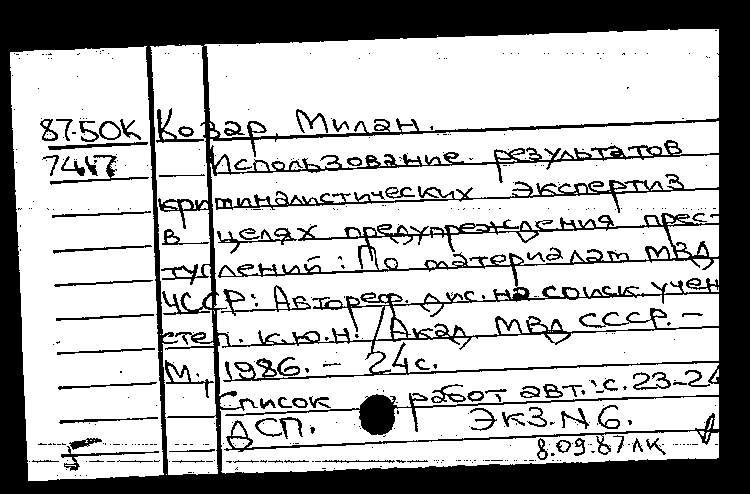 87-5ОК Козар, Милан.
7447 Использование результатов
криминалистических экспертиз
в целях предупреждения прес-
туплений: По материалам МВД
ЧССР: Автореф. дис. на соиск. учен
степ. к.ю.н. / Акад. МВД СССР. –
М., 1986. – 24 с.
Список работ авт.: с. 23-24
ДСП. Экз. N 6.
8.09.87 ЛК